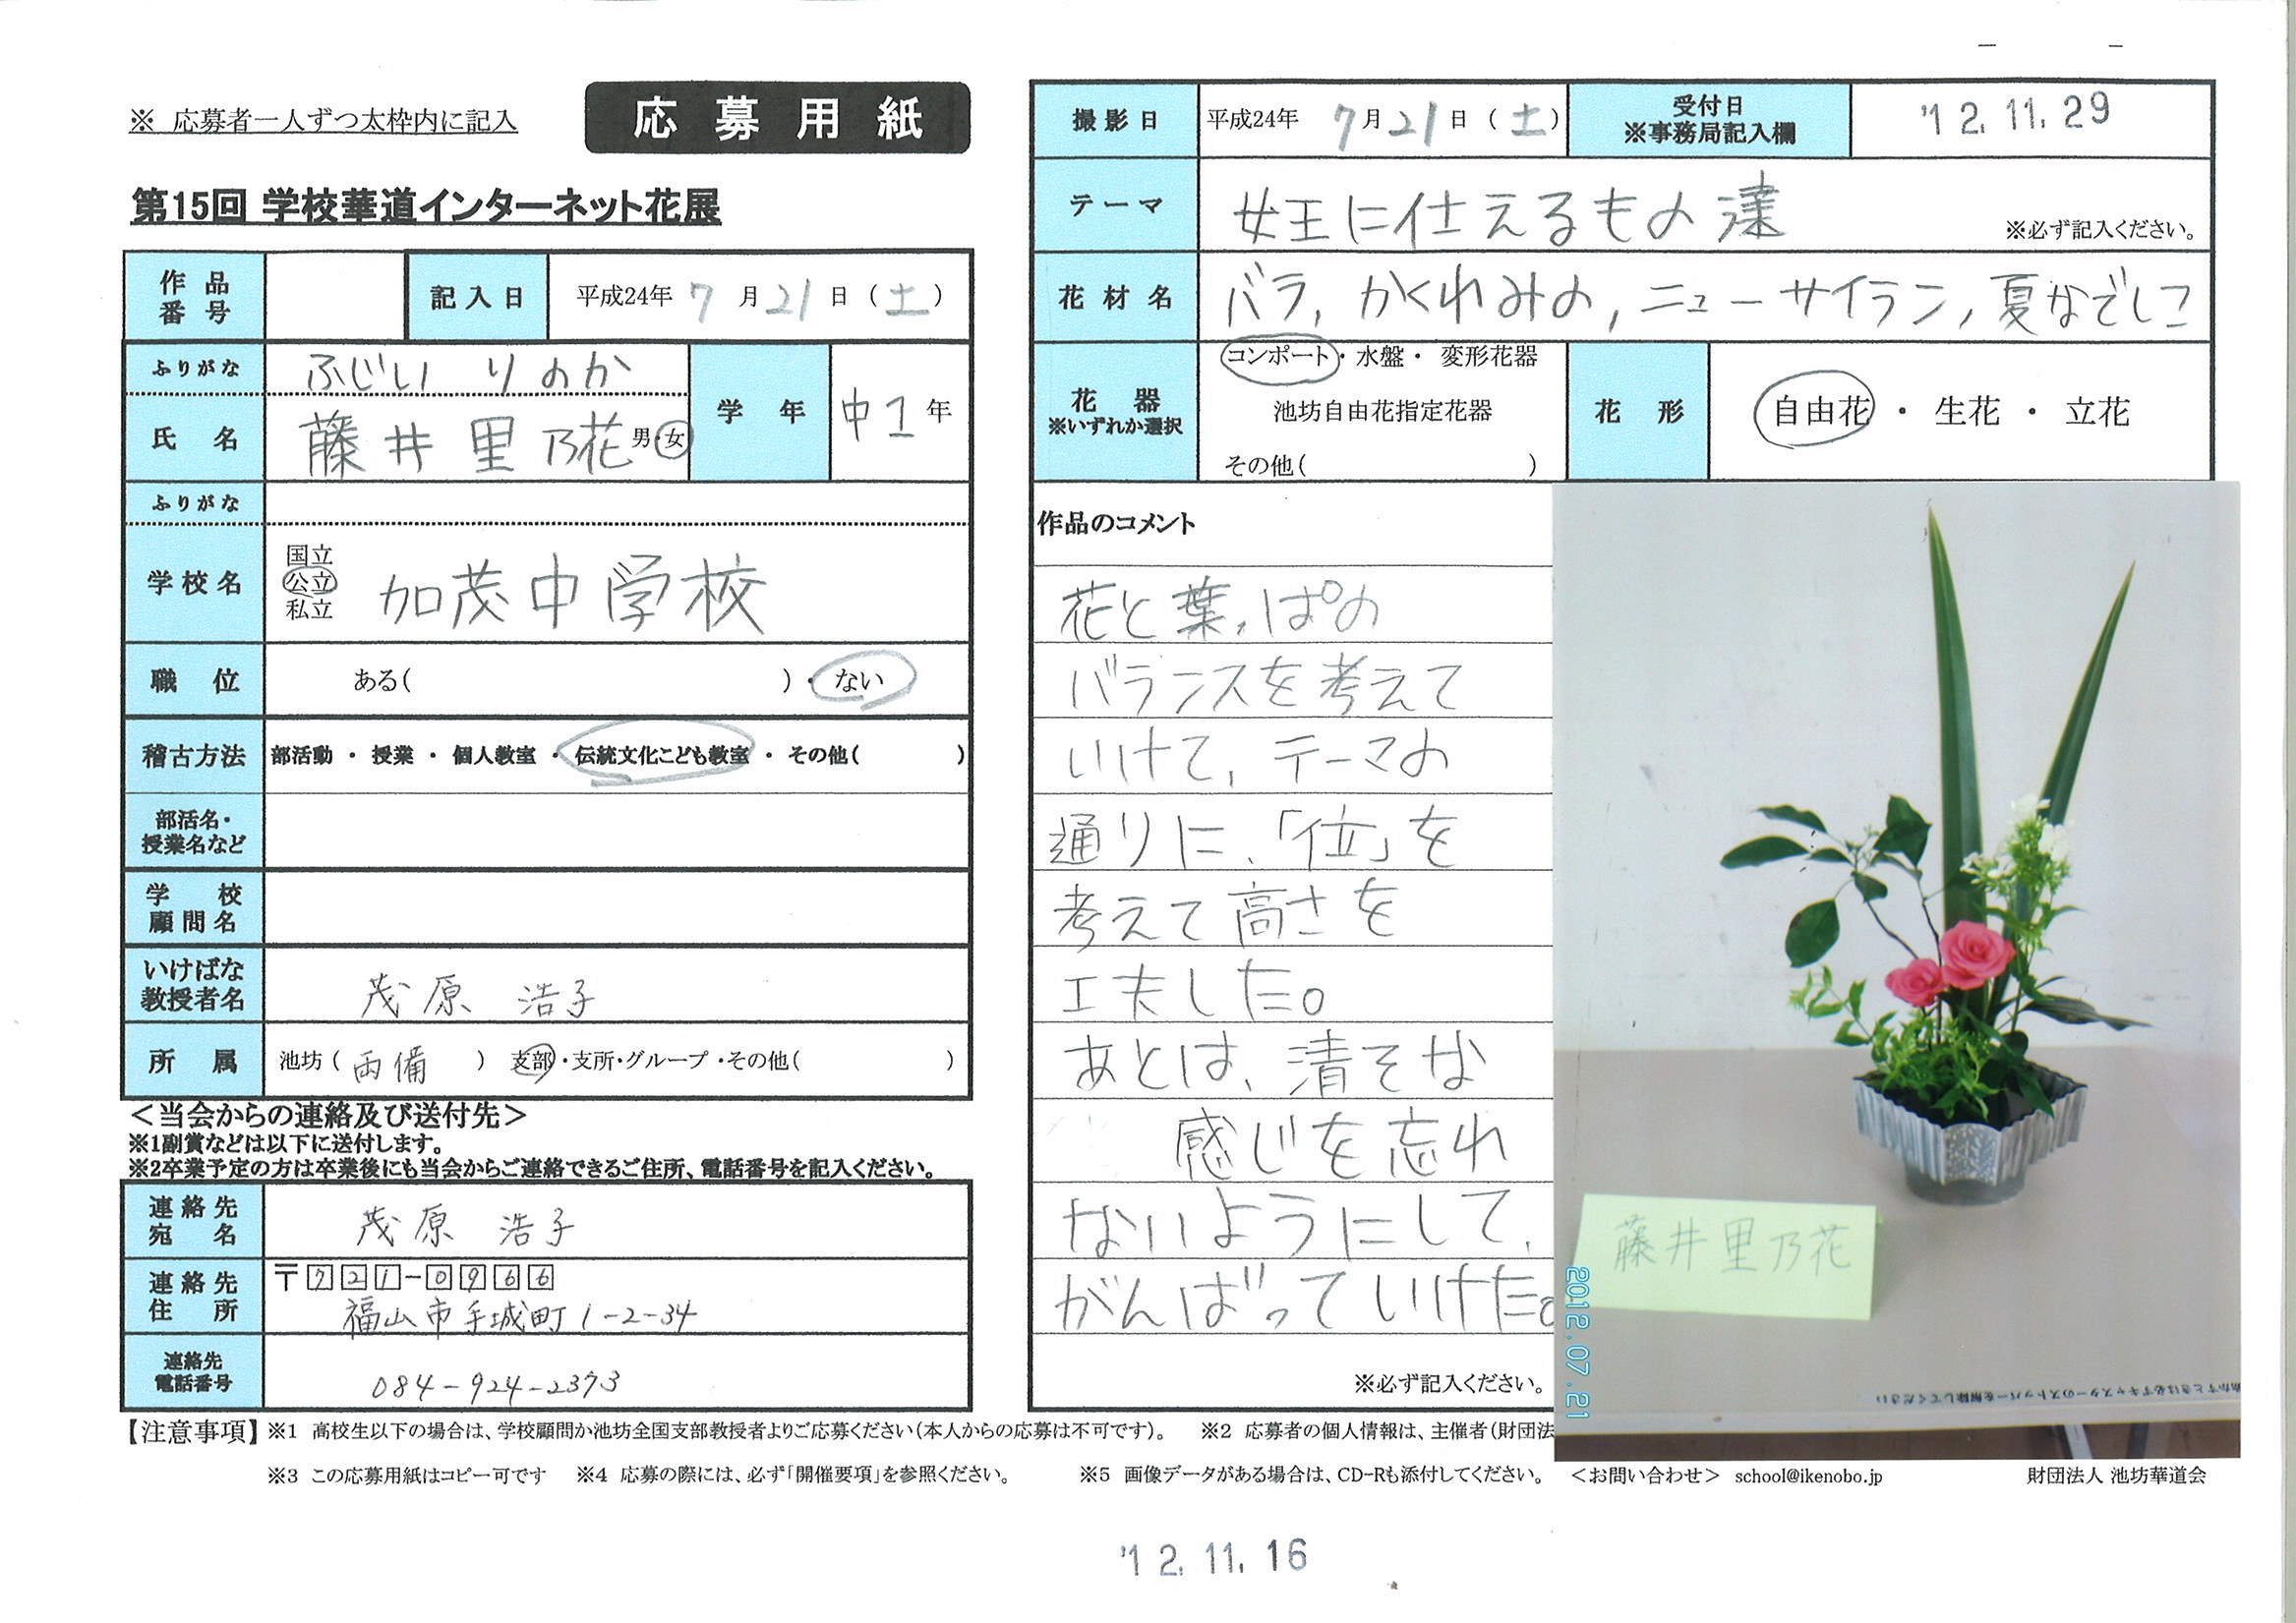 ※ 応募者一人ずつ太枠内に記入
応募用紙
第15回 学校華道インターネット花展
作品番号
記入日 平成24年 7月21日(土)
ふりがな ふじい りのか
氏名 藤井 里乃花 男・女
学年 中1年
ふりがな
学校名 国立 公立 私立 加茂中学校
職位 ある( )・ない
稽古方法 部活動 ・ 授業 ・ 個人教室 ・ 伝統文化こども教室 ・ その他( )
部活名・授業名など
学校顧問名
いけばな教授者名 茂原 浩子
所属 池坊( 両備 ) 支部・支所・グループ・その他( )
<当会からの連絡及び送付先>
※1副賞などは以下に送付します。
※2卒業予定の方は卒業後にも当会からご連絡できるご住所、電話番号を記入ください。
連絡先宛名 茂原 浩子
連絡先住所 〒721-0966
福山市手城町1-2-34
連絡先電話番号 084-924-2373
撮影日 平成24年 7月21日(土)
受付日 ※事務局記入欄 '12.11.29
テーマ 女王に仕えるもの達 ※必ず記入ください。
花材名 バラ, かくれみの, ニューサイラン, 夏なでしこ
花器 ※いずれか選択 コンポート・水盤・ 変形花器
池坊自由花指定花器
その他( )
花形 自由花 ・ 生花 ・ 立花
作品のコメント
花と葉っぱの
バランスを考えて
いけて, テーマの
通りに、「位」を
考えて高さを
工夫した。
あとは、清そな
感じを忘れ
ないようにして、
がんばっていけた。
※必ず記入ください。
藤井里乃花
2012.07.21
【注意事項】 ※1 高校生以下の場合は、学校顧問か池坊全国支部教授者よりご応募ください(本人からの応募は不可です)。 ※2 応募者の個人情報は、主催者(財団法
※3 この応募用紙はコピー可です ※4 応募の際には、必ず「開催要項」を参照ください。 ※5 画像データがある場合は、CD-Rも添付してください。 <お問い合わせ> school@ikenobo.jp 財団法人 池坊華道会
'12.11.16